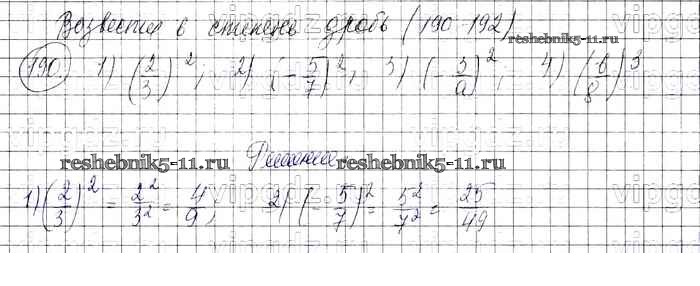 Возвести в степень дробь (190-192)
reshebnik5-11.ru
190) 1) (2/3)²; 2) (-5/7)²; 3) (-3/a)², 4) (b/8)³
Решение.
reshebnik5-11.ru reshebnik5-11.ru
1) (2/3)² = 2²/3² = 4/9, 2) (-5/7)² = 5²/7² = 25/49